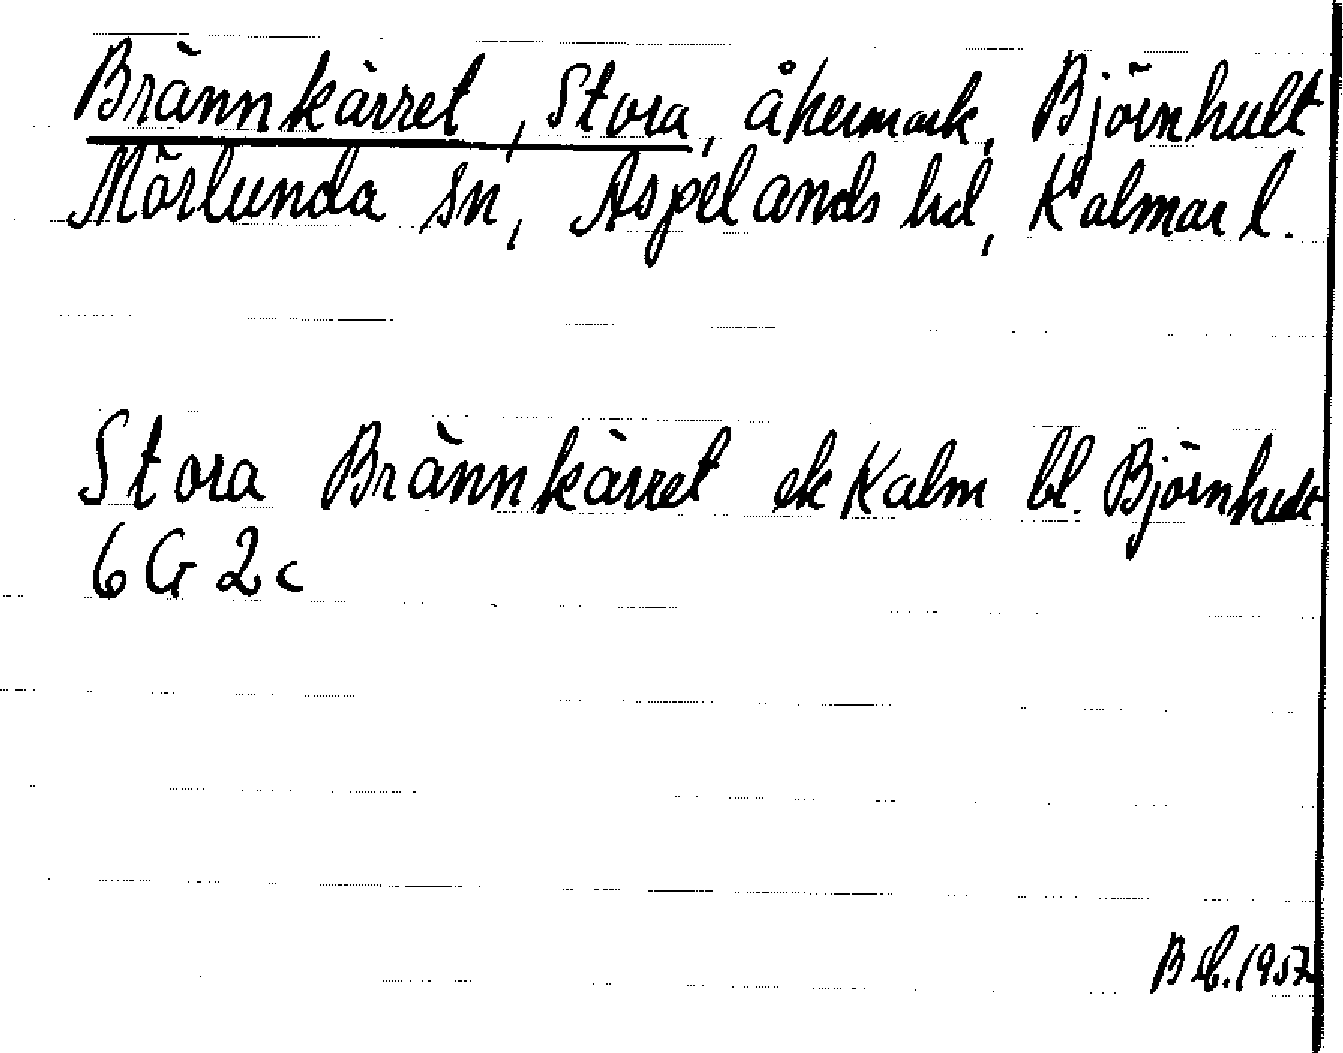 Brännkärret, Stora, åkermark, Björnhult
Mörlunda sn, Aspelands hd, Kalmar l.
Stora Brännkärret ek Kalm bl. Björnhult
6G2c
1957